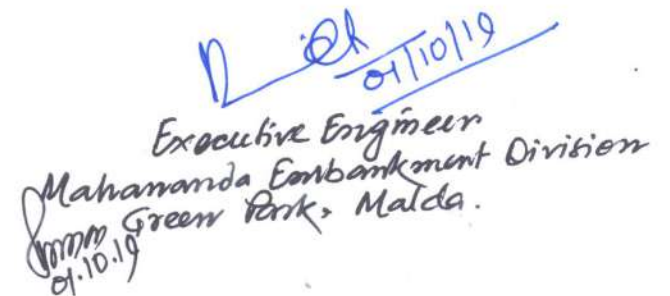 01/10/19
Executive Engineer
Mahananda Embankment Division
Green Park, Malda.
01.10.19